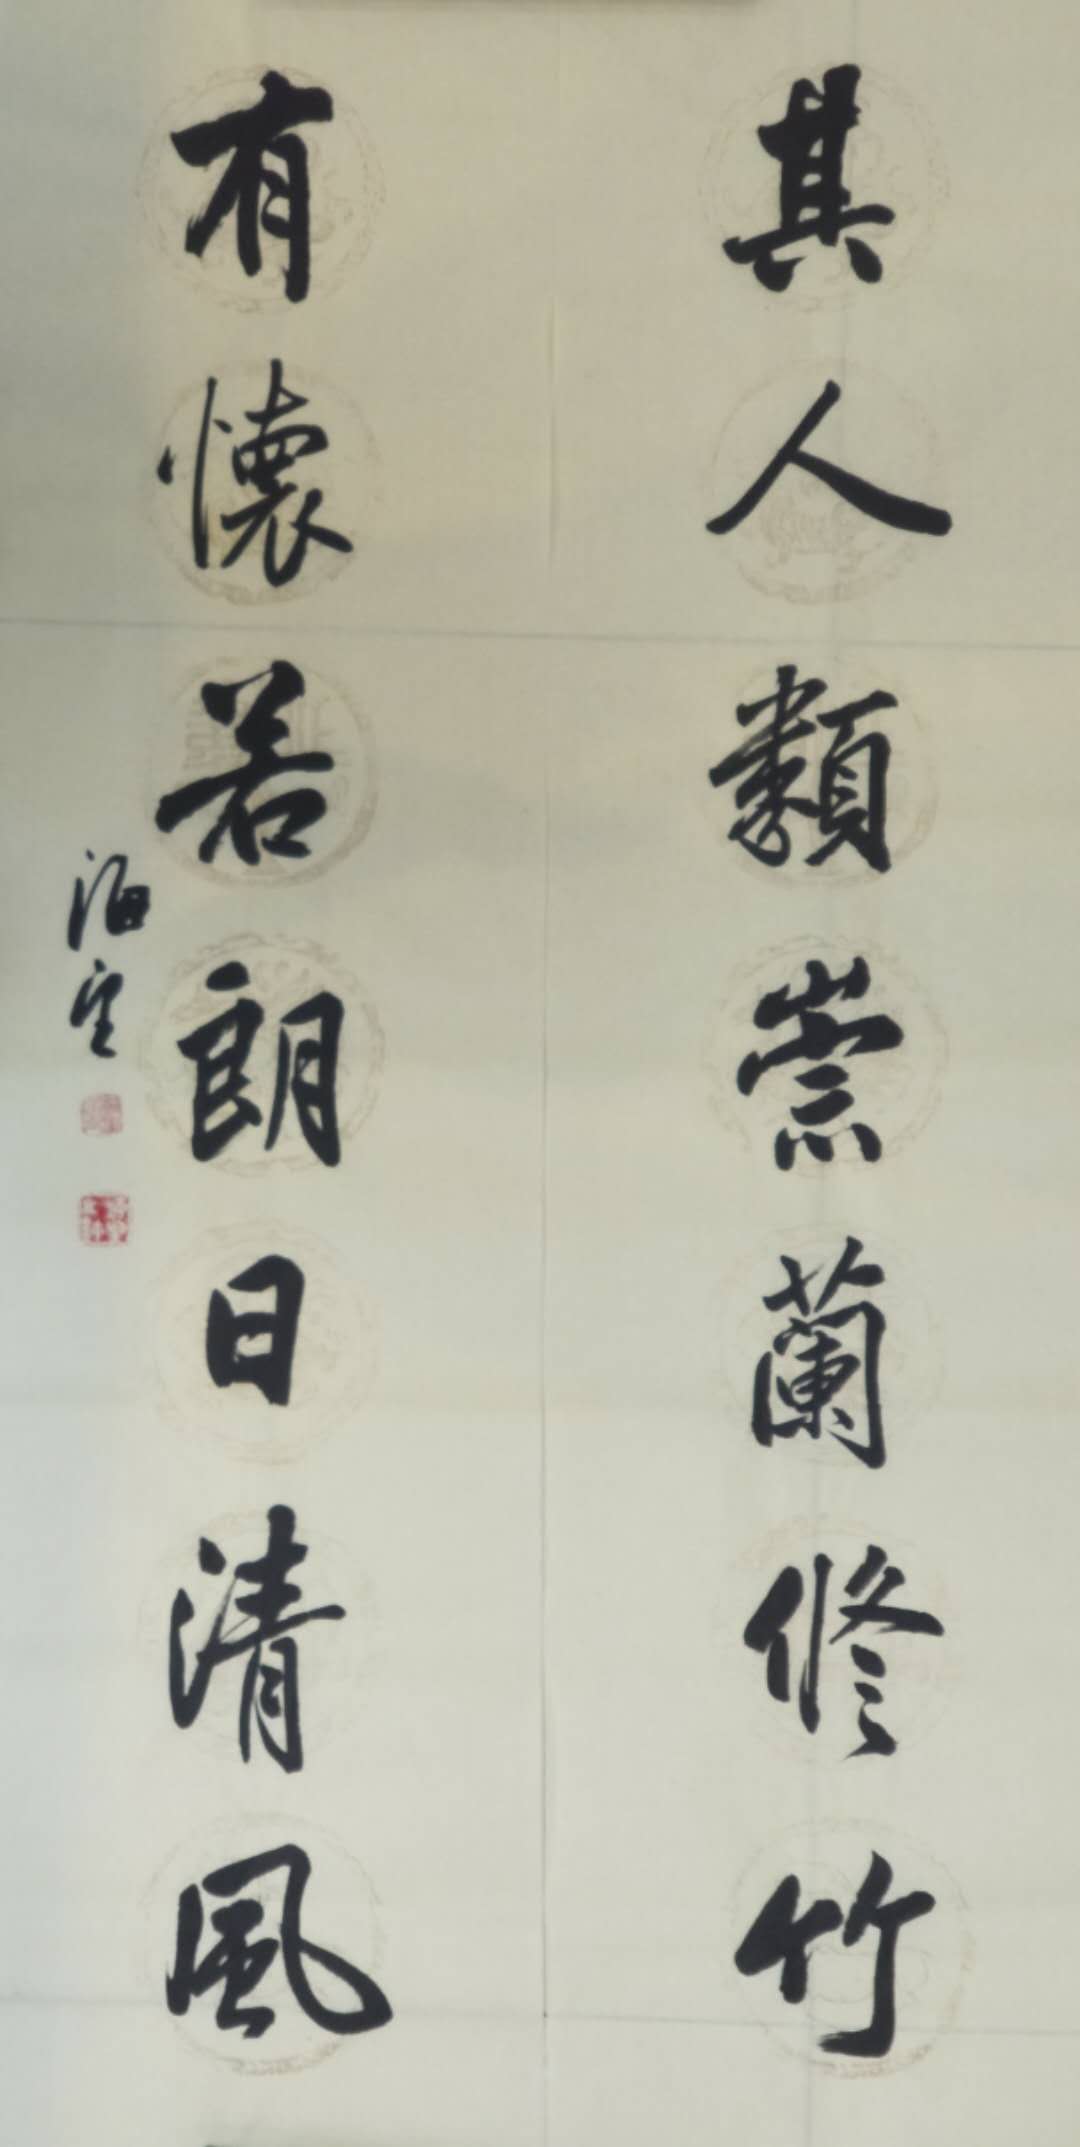 其人類崇蘭修竹
有懷若朗日清風